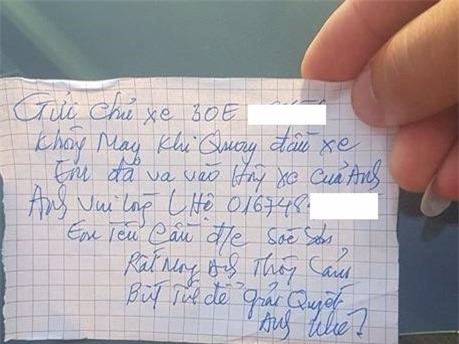 Gửi chủ xe 30E
Không May Khi Quay đầu xe
Em đã va vào Hông xe của Anh
Anh vui lòng LHệ 016748
Em Tên Cần đ/c Sóc Sơn
Rất Mong Anh Thông Cảm
Bớt Tiền để giải Quyết
Anh Nhé?